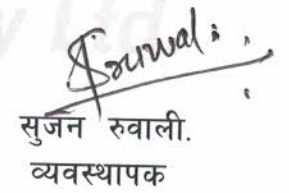 सुजन रुवाली.
व्यवस्थापक